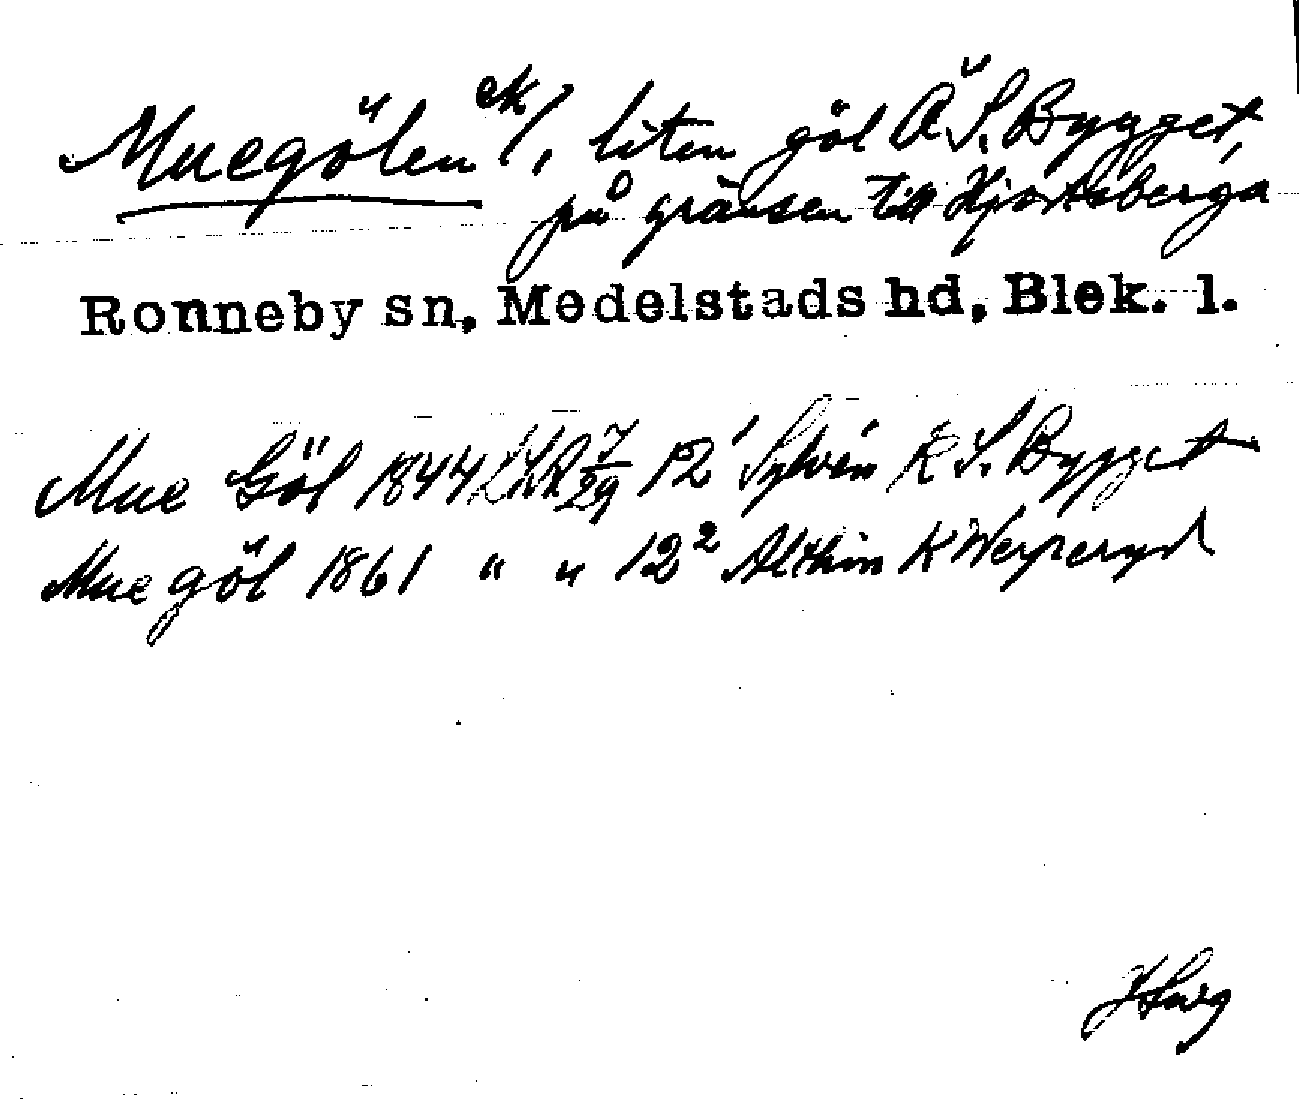 Muegölen ek/, liten göl Ä S. Bygget,
på gränsen till Hjortsberga
Ronneby sn, Medelstads hd, Blek. l.
Mue Göl 1844 LSA 7/29 12¹ Sylvén K S. Bygget
Mue göl 1861 " " 12² Althin K Werperyd